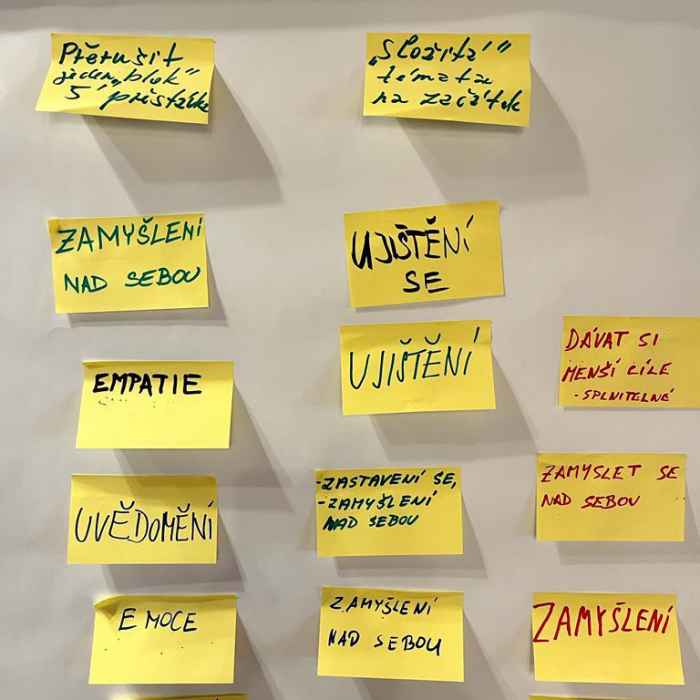 Přerušit
jeden „blok"
5' přestávka
„Složitá"
témata
na začátek
ZAMYŠLENÍ
NAD SEBOU
UJIŠTĚNÍ
SE
EMPATIE
UJIŠTĚNÍ
DÁVAT SI
MENŠÍ CÍLE
- SPLNITELNÉ
UVĚDOMĚNÍ
-ZASTAVENÍ SE,
-ZAMYŠLENÍ
NAD SEBOU
ZAMYSLET SE
NAD SEBOU
EMOCE
ZAMYŠLENÍ
NAD SEBOU
ZAMYŠLENÍ